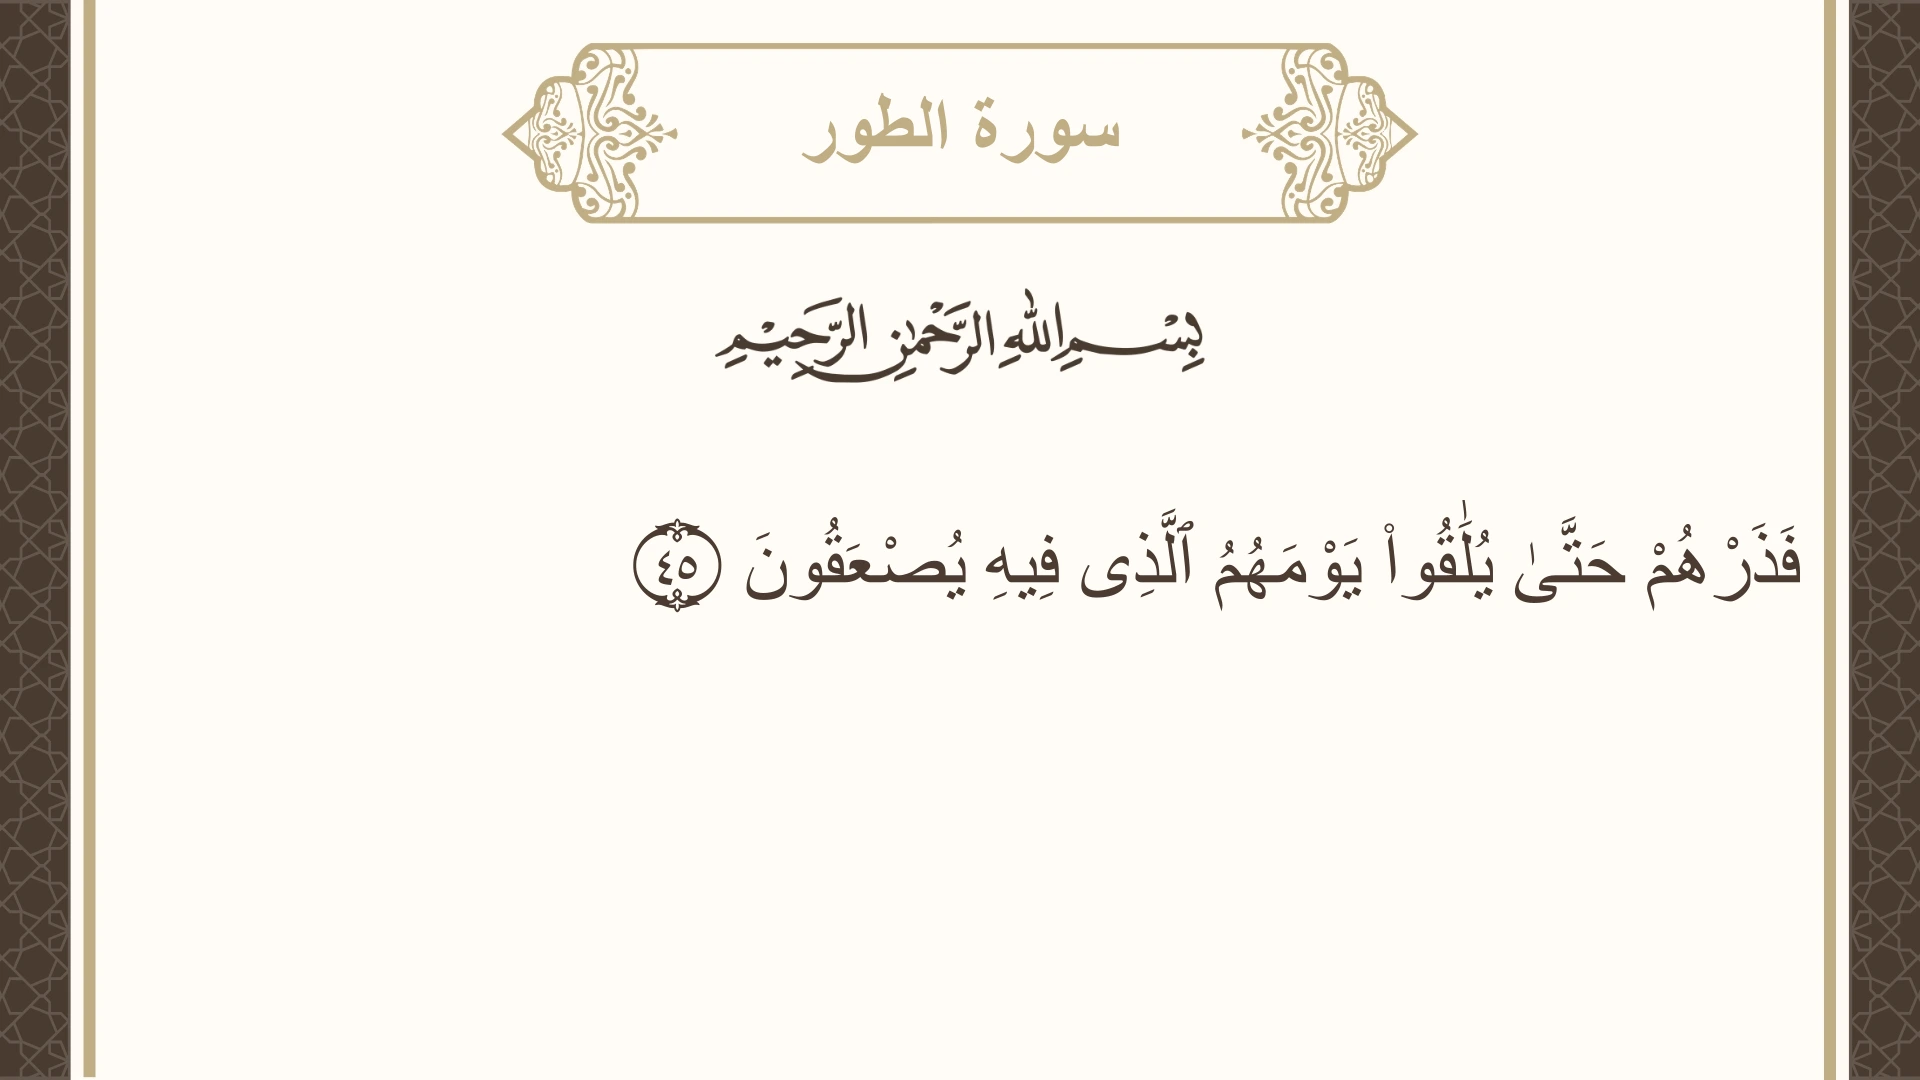 سورة الطور
بِسْمِ اللهِ الرَّحْمٰنِ الرَّحِيْمِ
فَذَرْهُمْ حَتَّىٰ يُلَٰقُوا۟ يَوْمَهُمُ ٱلَّذِى فِيهِ يُصْعَقُونَ ٤٥